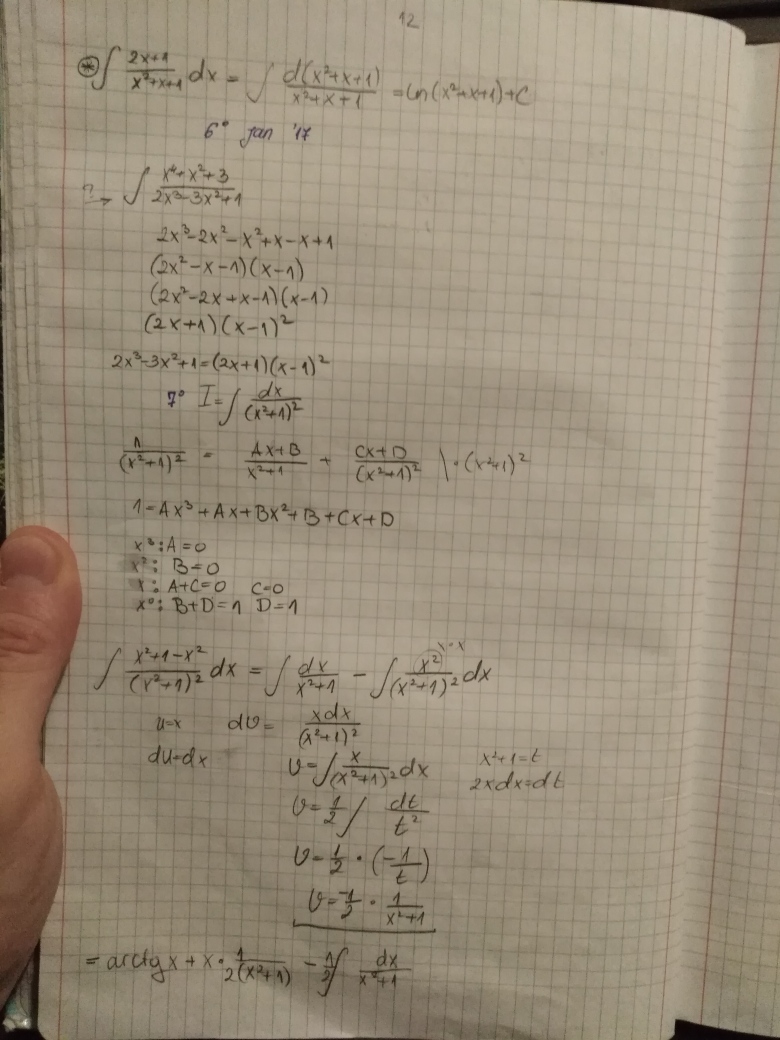 12
⊛ ∫ (2x+1)/(x²+x+1) dx = ∫ d(x²+x+1)/(x²+x+1) = ln(x²+x+1)+C
6° jan '17
?→ ∫ (x⁴+x²+3)/(2x³-3x²+1)
2x³-2x²-x²+x-x+1
(2x²-x-1)(x-1)
(2x²-2x+x-1)(x-1)
(2x+1)(x-1)²
2x³-3x²+1=(2x+1)(x-1)²
7° I=∫ dx/(x²+1)²
1/(x²+1)² = (Ax+B)/(x²+1) + (Cx+D)/(x²+1)² \·(x²+1)²
1=Ax³+Ax+Bx²+B+Cx+D
x³: A=0
x²: B=0
x: A+C=0 C=0
x⁰: B+D=1 D=1
∫ (x²+1-x²)/(x²+1)² dx = ∫ dx/(x²+1) - ∫ x²/(x²+1)² dx
x·x
u=x dv= xdx/(x²+1)²
du=dx v=∫ x/(x²+1)² dx x²+1=t
2xdx=dt
v=1/2 ∫ dt/t²
v=1/2 · (-1/t)
v=-1/2 · 1/(x²+1)
= arctg x + x · 1/2(x²+1) - 1/2 ∫ dx/(x²+1)